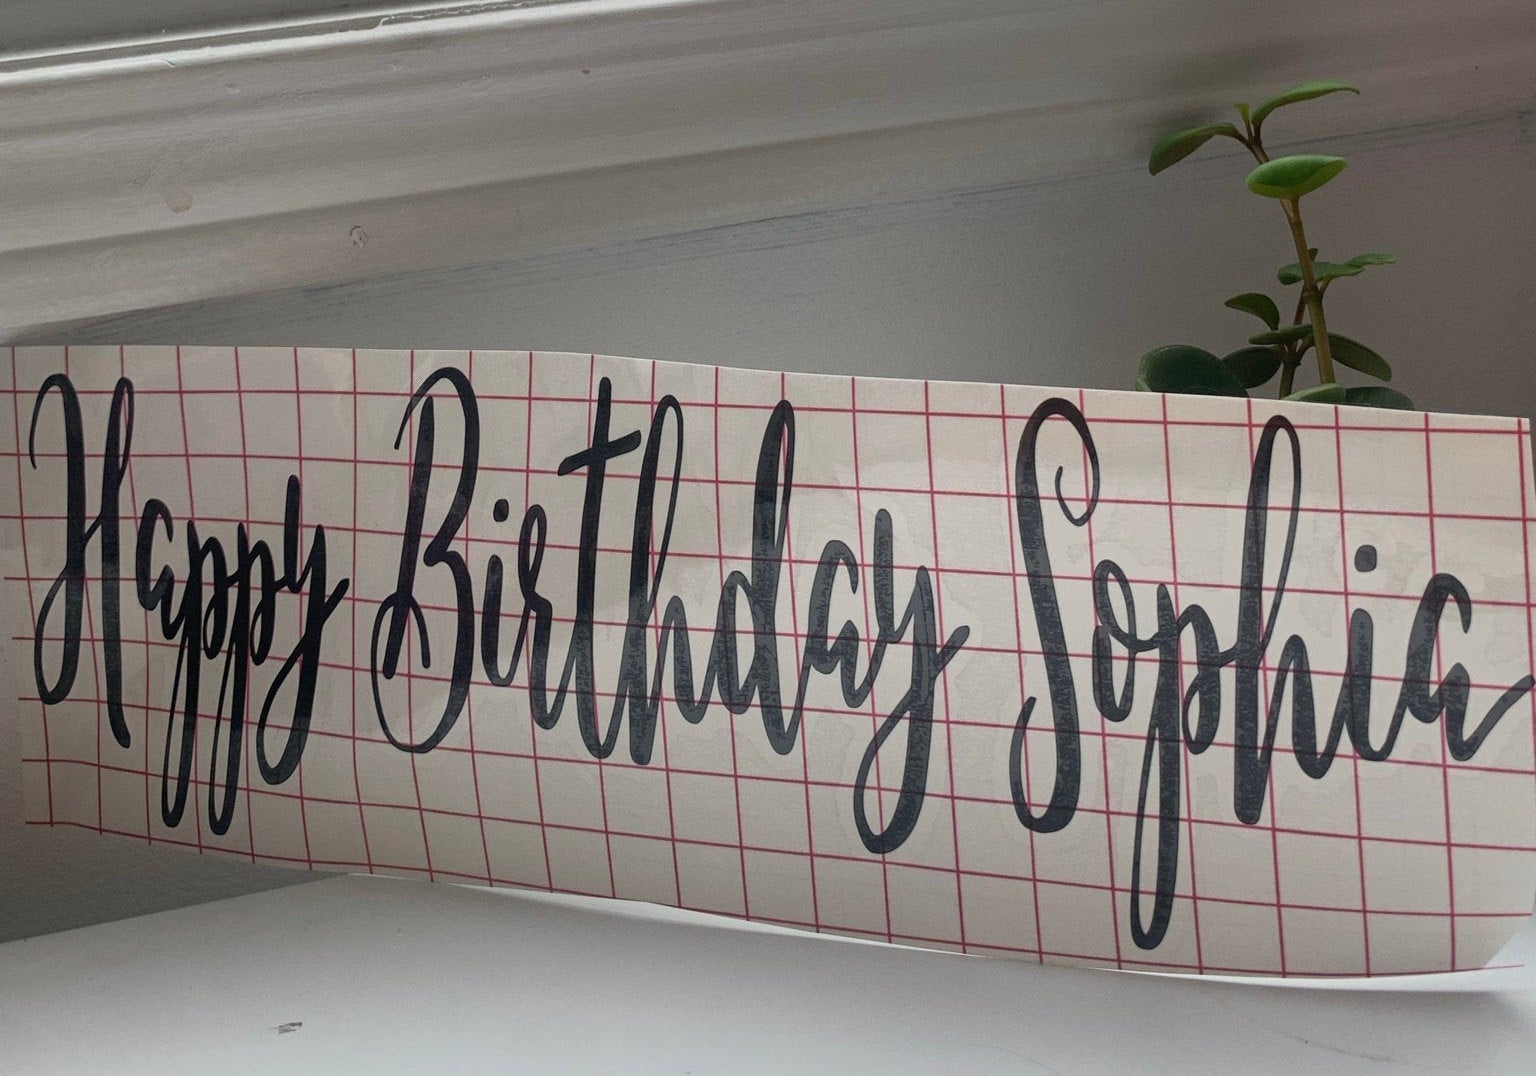 Happy Birthday Sophia